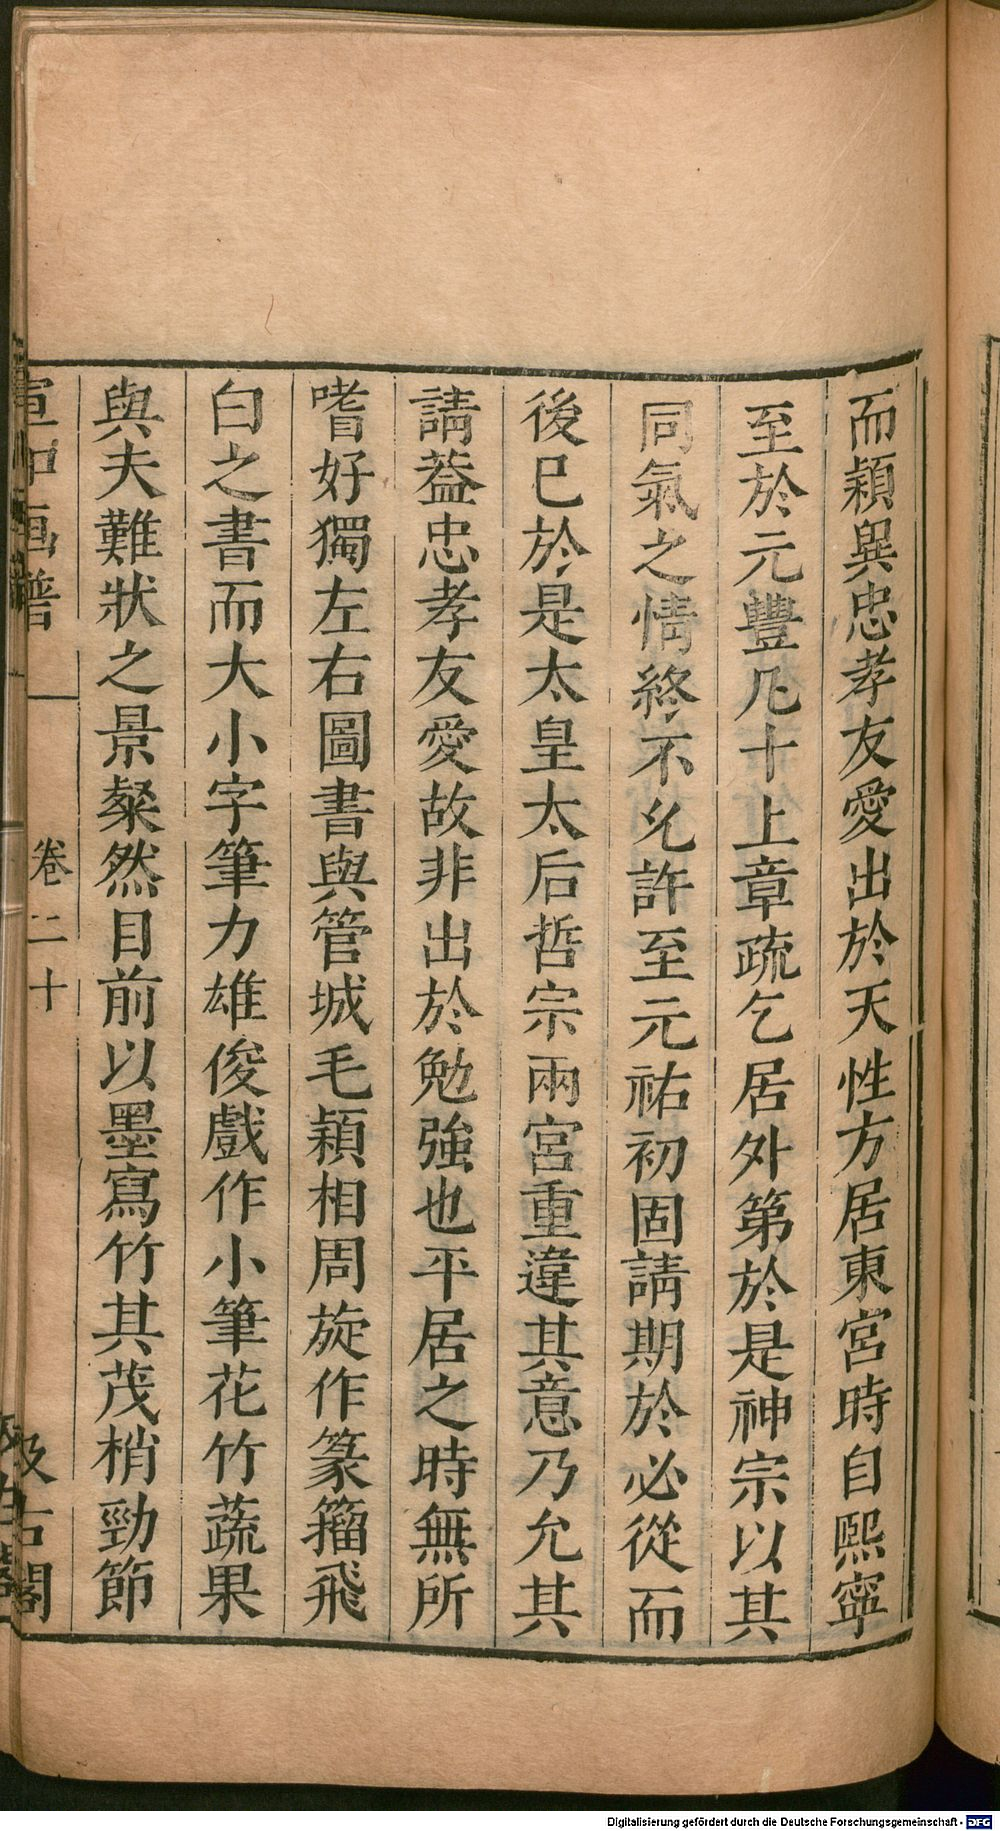 而穎異忠孝友愛出於天性方居東宮時自熙寧
至於元豐凡十上章疏乞居外第於是神宗以其
同氣之情終不允許至元祐初固請期於必從而
後已於是太皇太后哲宗兩宮重違其意乃允其
請葢忠孝友愛故非出於勉強也平居之時無所
嗜好獨左右圖書與管城毛穎相周旋作篆籀飛
白之書而大小字筆力雄俊戲作小筆花竹蔬果
與夫難狀之景粲然目前以墨寫竹其茂梢勁節
宣和画譜 卷二十 汲古閣
Digitalisierung gefördert durch die Deutsche Forschungsgemeinschaft - DFG